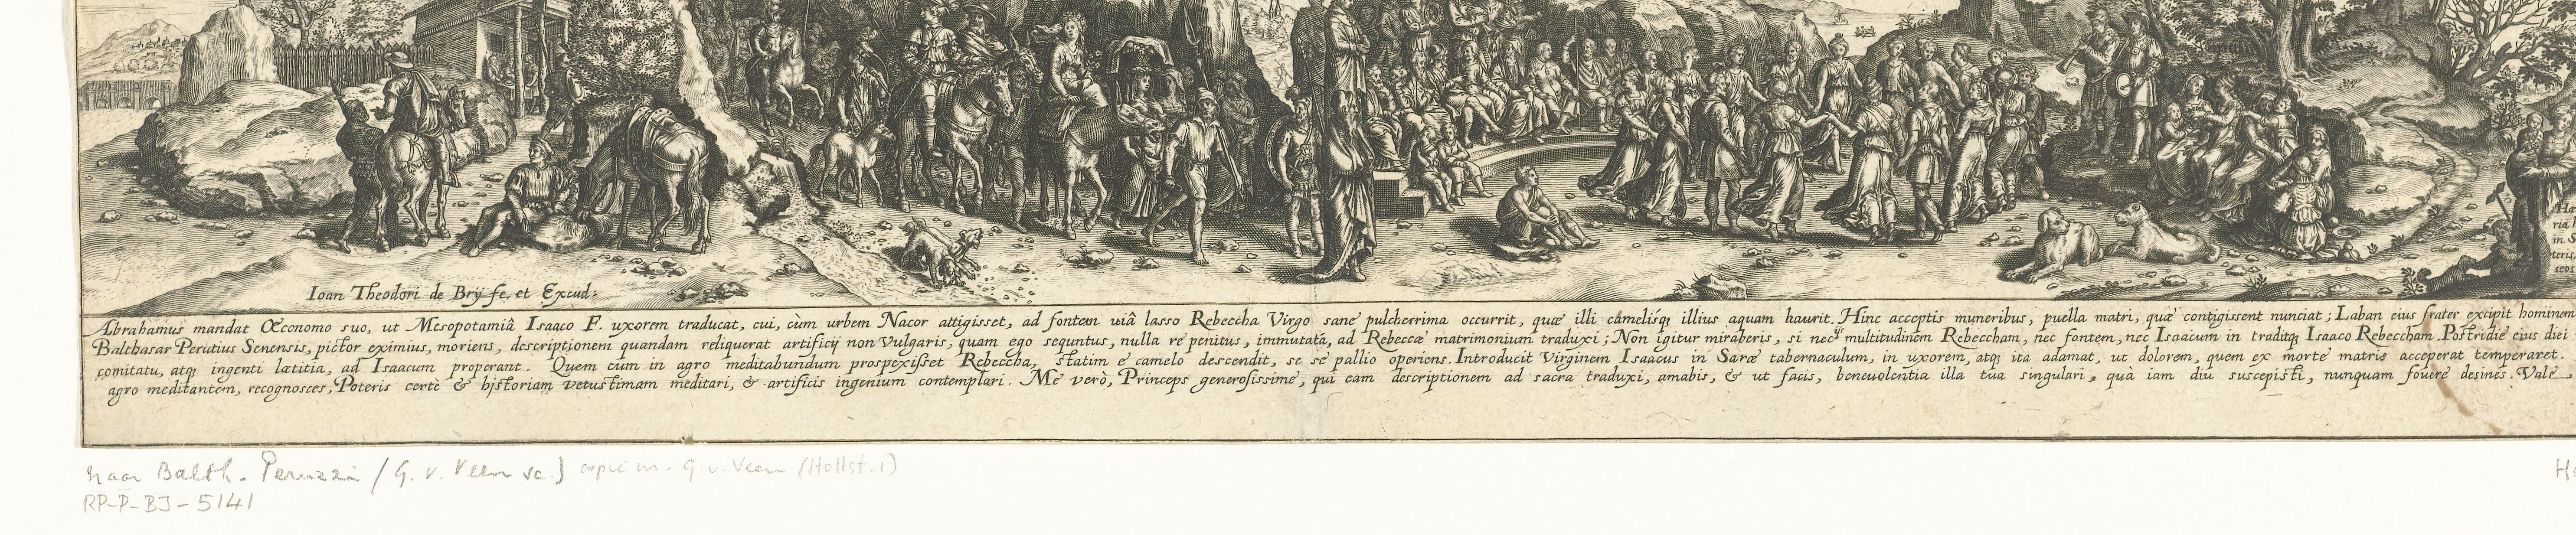 Ioan Theodori de Brÿ fe. et Excud:
Abrahamus mandat Œconomo suo, ut Mesopotamiâ Isaaco F. uxorem traducat, cui, cùm urbem Nacor attigisset, ad fontem uiâ lasso Rebeccha Virgo sane pulcherrima occurrit, quæ illi camelisq; illius aquam haurit. Hinc acceptis muneribus, puella matri, quæ contigissent nunciat; Laban eius frater excipit hominem
Balthasar Perutius Senensis, pictor eximius, moriens, descriptionem quandam reliquerat artificij non Vulgaris, quam ego sequutus, nulla re penitus, immutata, ad Rebeccæ matrimonium traduxi; Non igitur miraberis, si nec multitudinem Rebeccham, nec fontem, nec Isaacum in traditq; Isaaco Rebeccham. Postridie eius diei
comitatu, atq; ingenti lætitia, ad Isaacum properant. Quem cum in agro meditabundum prospexisset Rebeccha, statim e camelo descendit, se se pallio operiens. Introducit Virginem Isaacus in Saræ tabernaculum, in uxorem, atq; ita adamat, ut dolorem, quem ex morte matris acceperat temperaret.
agro meditantem, recognosces, Poteris certè & historiam vetustimam meditari, & artificis ingenium contemplari. Me verò, Princeps generosissime, qui eam descriptionem ad sacra traduxi, amabis, & ut facis, beneuolentia illa tua singulari, quà iam diu suscepisti, nunquam fouere desines. Vale
naar Balth. Peruzzi / G. v. Veen sc.) copie m. G. v. Veen (Hollst. 1)
RP-P-BI-5141